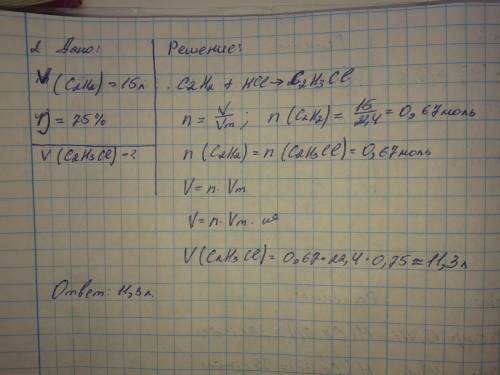 2 Дано:
V (C2H2) = 15л
η = 75%
V (C2H3Cl) - ?
Решение:
C2H2 + HCl → C2H3Cl
n = V/Vm ; n (C2H2) = 15/22,4 = 0,67 моль
n (C2H2) = n (C2H3Cl) = 0,67 моль
V = n · Vm
V = n · Vm ·
V (C2H3Cl) = 0,67 · 22,4 · 0,75 ≈ 11,3 л
Ответ: 11,3 л.